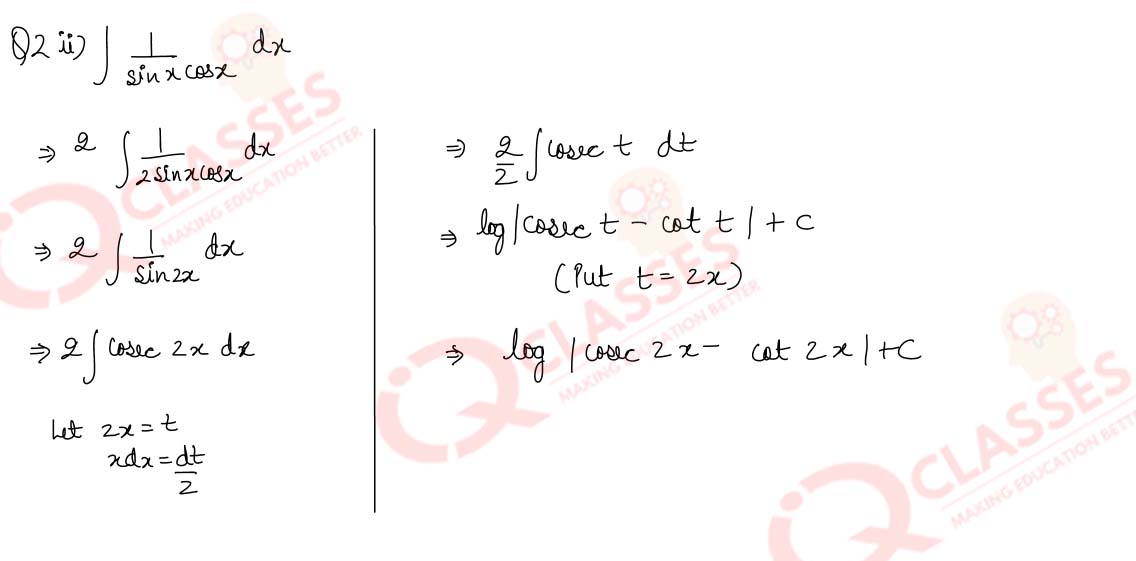 Q2 ii) ∫ 1/(sin x cosx) dx
⇒ 2 ∫ 1/(2sinxcosx) dx
⇒ 2 ∫ 1/(sin2x) dx
⇒ 2 ∫ cosec 2x dx
Let 2x = t
xdx = dt/2
⇒ 2/2 ∫ cosec t dt
⇒ log|cosec t - cot t| + c
(Put t = 2x)
⇒ log |cosec 2x - cot 2x| + C
IQ CLASSES
MAKING EDUCATION BETTER
IQ CLASSES
MAKING EDUCATION BETTER
IQ CLASSES
MAKING EDUCATION BETTER